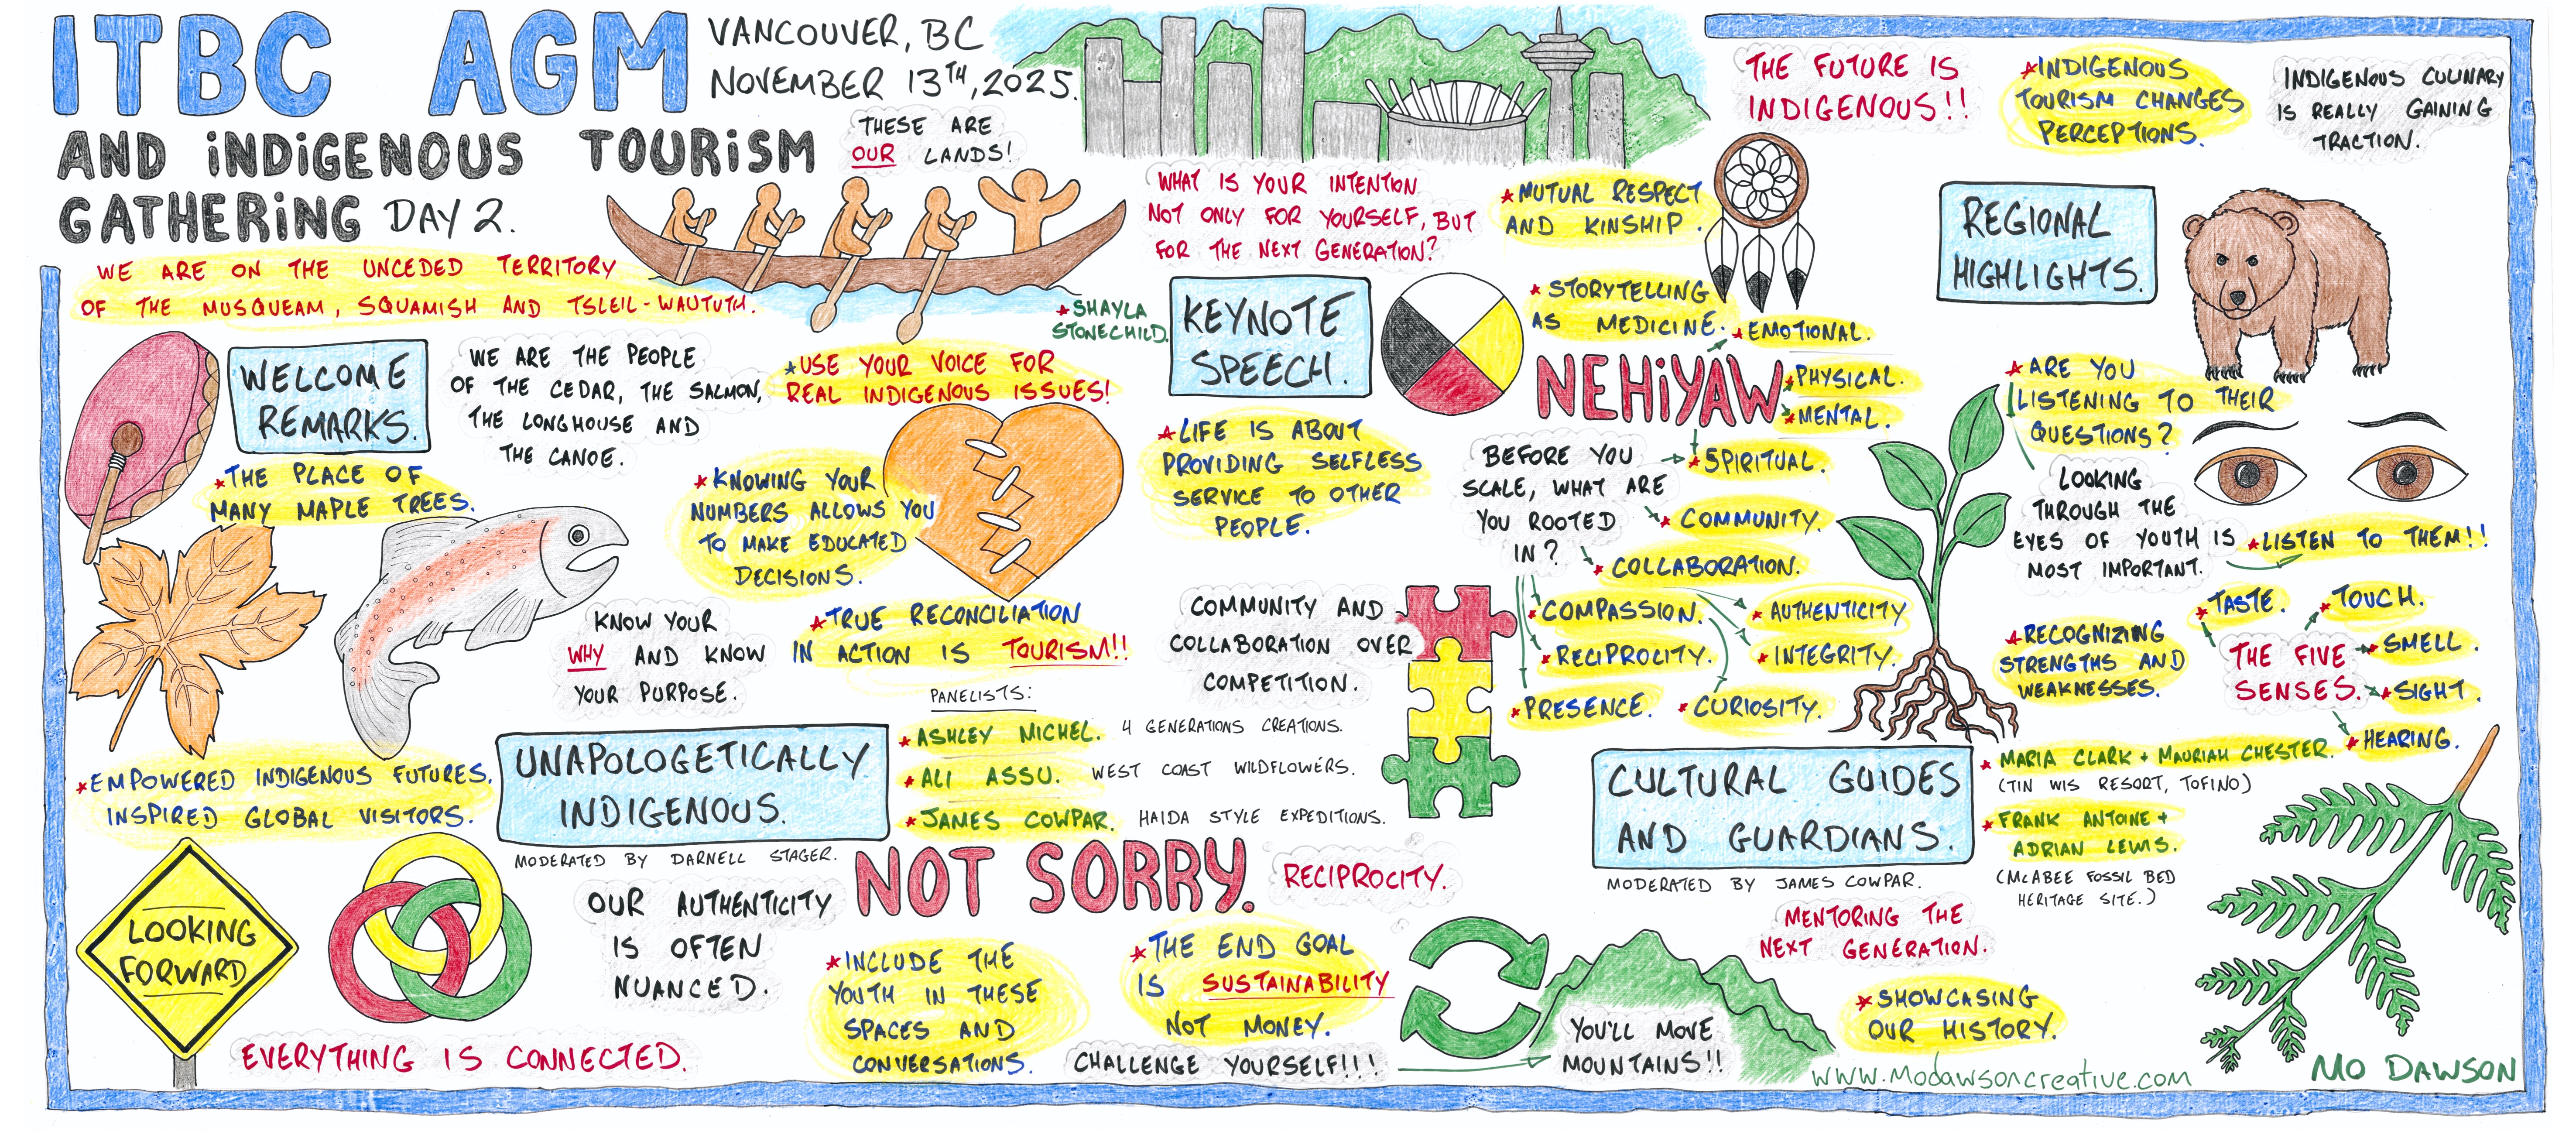 ITBC AGM
VANCOUVER, BC
NOVEMBER 13TH, 2025.
AND INDIGENOUS TOURISM
GATHERING DAY 2.
THESE ARE
OUR LANDS!
WE ARE ON THE UNCEDED TERRITORY
OF THE MUSQUEAM, SQUAMISH AND TSLEIL-WAUTUTH.
WELCOME
REMARKS.
WE ARE THE PEOPLE
OF THE CEDAR, THE SALMON,
THE LONGHOUSE AND
THE CANOE.
*THE PLACE OF
MANY MAPLE TREES.
*USE YOUR VOICE FOR
REAL INDIGENOUS ISSUES!
*KNOWING YOUR
NUMBERS ALLOWS YOU
TO MAKE EDUCATED
DECISIONS.
KNOW YOUR
WHY AND KNOW
YOUR PURPOSE.
*TRUE RECONCILIATION
IN ACTION IS TOURISM!!
*EMPOWERED INDIGENOUS FUTURES,
INSPIRED GLOBAL VISITORS.
LOOKING
FORWARD
EVERYTHING IS CONNECTED.
UNAPOLOGETICALLY
INDIGENOUS.
MODERATED BY DARNELL STAGER.
PANELISTS:
*ASHLEY MICHEL. 4 GENERATIONS CREATIONS.
*ALI ASSU. WEST COAST WILDFLOWERS.
*JAMES COWPAR. HAIDA STYLE EXPEDITIONS.
NOT SORRY.
RECIPROCITY.
OUR AUTHENTICITY
IS OFTEN
NUANCED.
*INCLUDE THE
YOUTH IN THESE
SPACES AND
CONVERSATIONS.
*THE END GOAL
IS SUSTAINABILITY
NOT MONEY.
CHALLENGE YOURSELF!!!
YOU'LL MOVE
MOUNTAINS!!
WHAT IS YOUR INTENTION
NOT ONLY FOR YOURSELF, BUT
FOR THE NEXT GENERATION?
*SHAYLA
STONECHILD.
KEYNOTE
SPEECH.
*MUTUAL RESPECT
AND KINSHIP.
*STORYTELLING
AS MEDICINE.
NEHIYAW
*EMOTIONAL.
*PHYSICAL.
*MENTAL.
*SPIRITUAL.
*LIFE IS ABOUT
PROVIDING SELFLESS
SERVICE TO OTHER
PEOPLE.
BEFORE YOU
SCALE, WHAT ARE
YOU ROOTED
IN?
*COMMUNITY.
*COLLABORATION.
*COMPASSION.
*AUTHENTICITY
*RECIPROCITY.
*INTEGRITY.
*PRESENCE.
*CURIOSITY.
COMMUNITY AND
COLLABORATION OVER
COMPETITION.
THE FUTURE IS
INDIGENOUS!!
*INDIGENOUS
TOURISM CHANGES
PERCEPTIONS.
INDIGENOUS CULINARY
IS REALLY GAINING
TRACTION.
REGIONAL
HIGHLIGHTS.
*ARE YOU
LISTENING TO THEIR
QUESTIONS?
LOOKING
THROUGH THE
EYES OF YOUTH IS
MOST IMPORTANT.
*LISTEN TO THEM!!
*RECOGNIZING
STRENGTHS AND
WEAKNESSES.
THE FIVE
SENSES.
*TASTE.
*TOUCH.
*SMELL.
*SIGHT.
*HEARING.
CULTURAL GUIDES
AND GUARDIANS.
MODERATED BY JAMES COWPAR.
*MARIA CLARK + MAURIAH CHESTER.
(TIN WIS RESORT, TOFINO)
*FRANK ANTOINE +
ADRIAN LEWIS.
(MCABEE FOSSIL BED
HERITAGE SITE.)
MENTORING THE
NEXT GENERATION.
*SHOWCASING
OUR HISTORY.
www.modawsoncreative.com
MO DAWSON